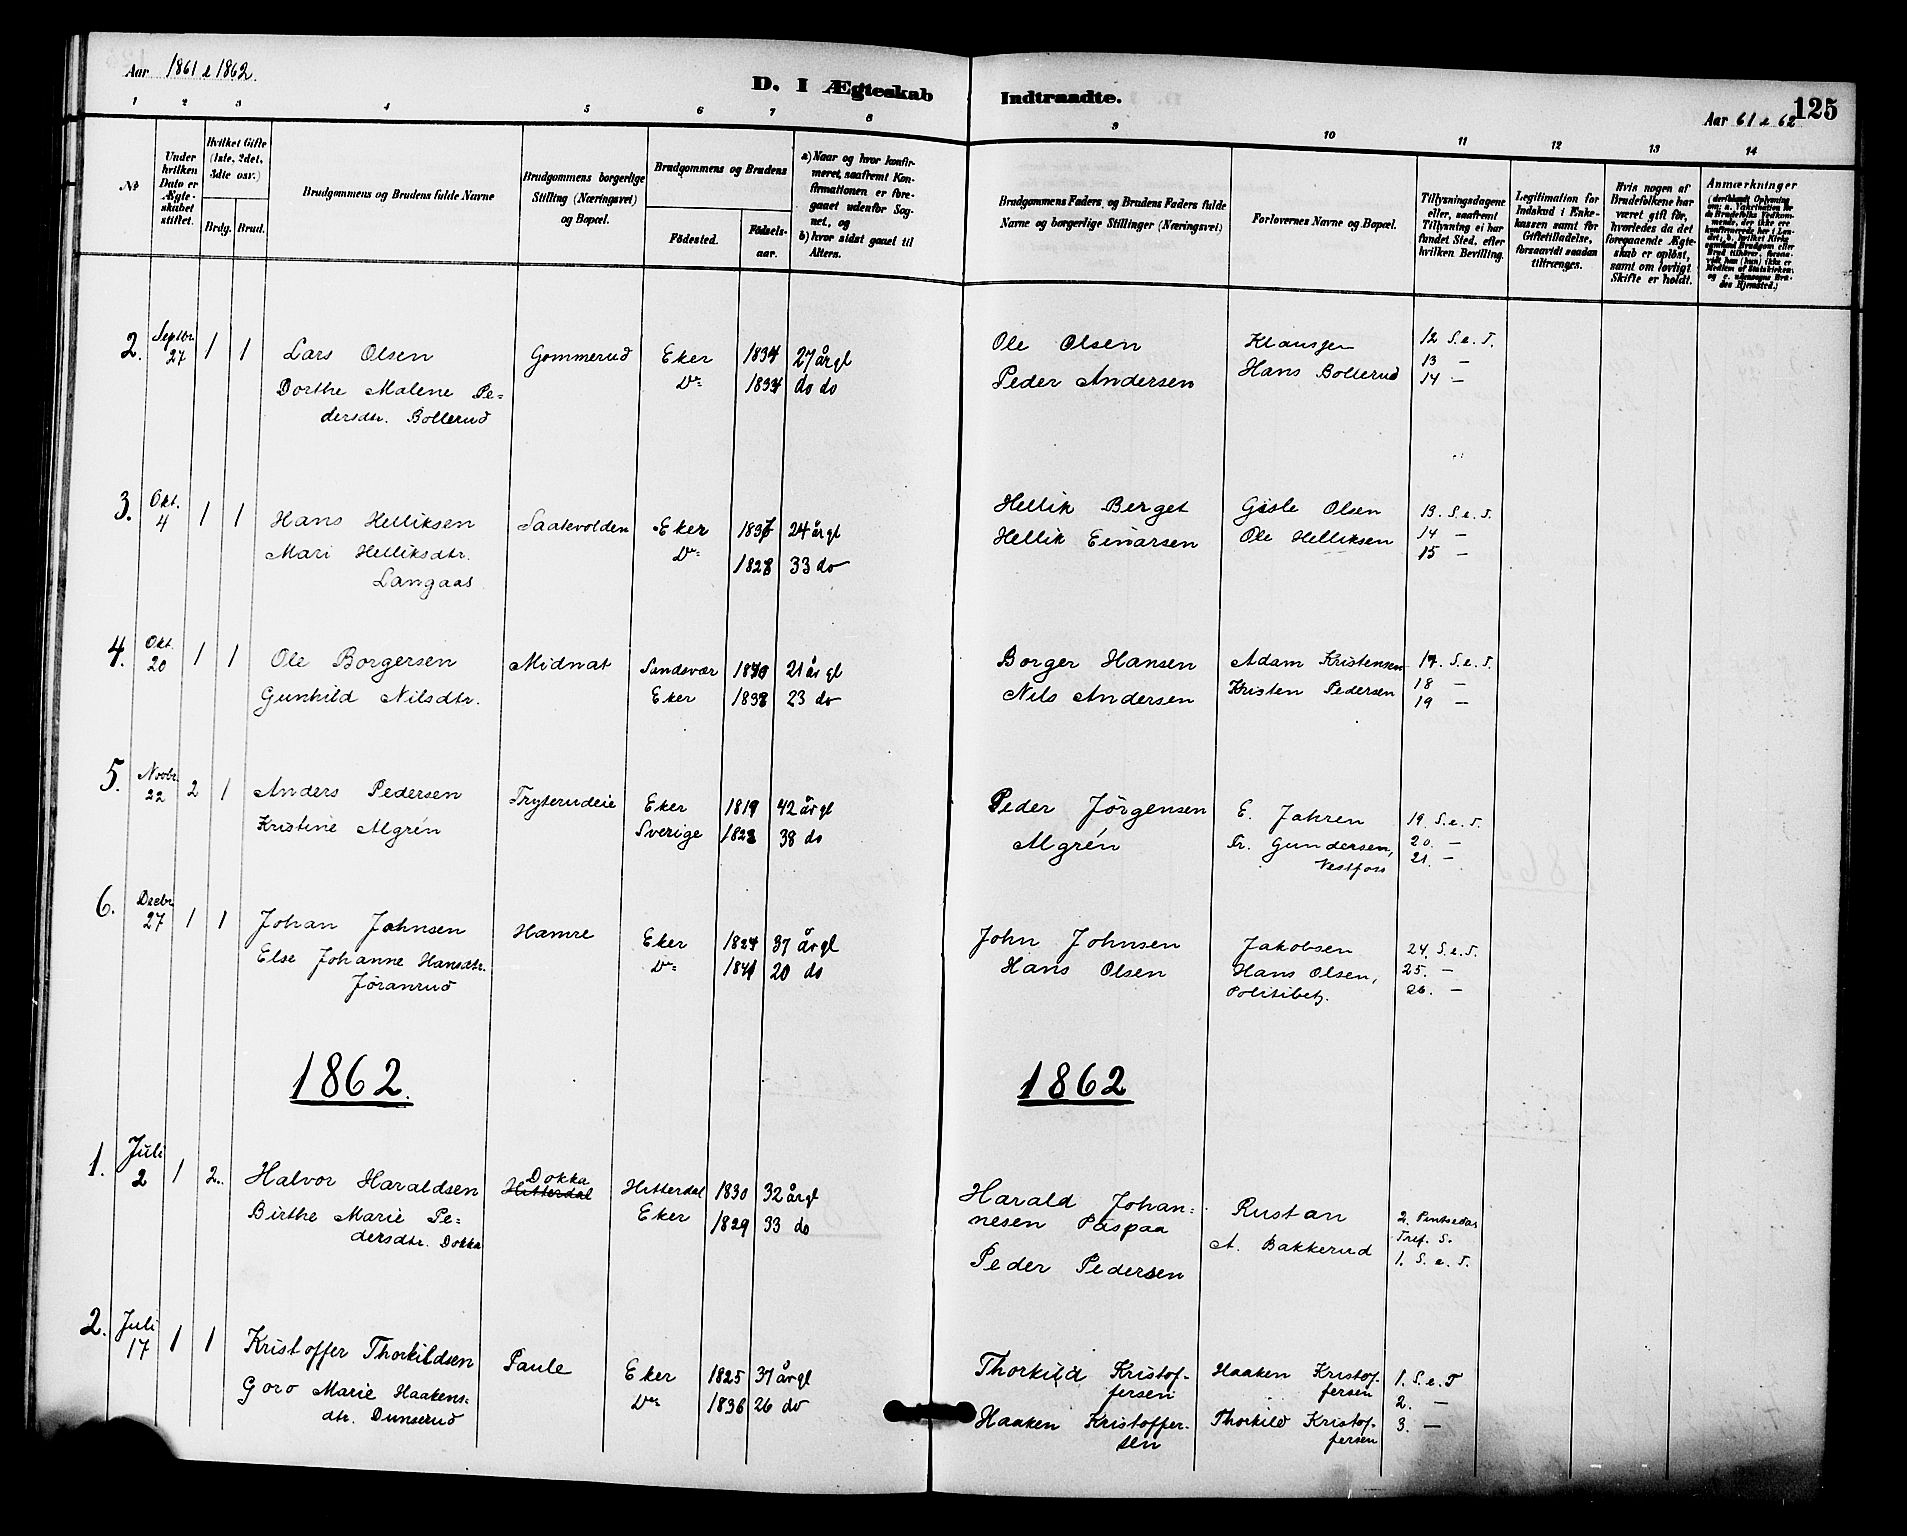 Aar 1861 & 1862.
D. I Ægteskab
Indtraadte.
125
Aar 61 & 62
1 2 3 4 5 6 7 8
9 10 11 12 13 14
No
Under hvilken Dato er Ægteskabet stiftet.
Hvilket Gifte (1ste, 2det, 3die osv.)
Brdg. Brud.
Brudgommens og Brudens fulde Navne
Brudgommens borgerlige Stilling (Næringsvei) og Bopæl.
Brudgommens og Brudens
Fødested.
Fødselsaar.
a) Naar og hvor konfirmeret, saafremt Konfirmationen er foregaaet udenfor Sognet, og
b) hvor sidst gaaet til Alters.
Brudgommens Faders, og Brudens Faders fulde Navne og borgerlige Stillinger (Næringsvei)
Forlovernes Navne og Bopæl.
Tillysningsdagene eller, saafremt Tillysning ei har fundet Sted, efter hvilken Bevilling.
Legitimation for Indskud i Enkekassen samt for Giftetilladelse, forsaavidt saadan tiltrænges.
Hvis nogen af Brudefolkene har været gift før, hvorledes da det foregaaende Ægteskab er opløst, samt om lovligt Skifte er holdt.
Anmærkninger
2. Septbr. 27 1 1 Lars Olsen Gommerud Eker 1834 27 årgl Ole Olsen 12 S.e.T.
Dorthe Malene Pe= Do 1834 do do Peder Andersen Hans Bollerud 13 —
dersdtr. Bollerud 14 —
3. Okt. 4 1 1 Hans Helliksen Saatevolden Eker 1837 24 årgl Hellik Berget Gisle Olsen 13. S.e.T.
Mari Helliksdtr. Do 1828 33 do Hellik Einarsen Ole Helliksen 14 —
Langaas 15 —
4. Okt. 20 1 1 Ole Borgersen Midnat Sandsvær 1840 21 år gl Borger Hansen Adam Kristensen 17. S.e.T.
Gunhild Nilsdtr. Eker 1838 23 do Nils Andersen Kristen Pedersen 18 —
19 —
5. Novbr. 22 2 1 Anders Pedersen Tryterudeie Eker 1819 42 årgl Peder Jörgensen E. Jahren 19. S.e.T.
Kristine Algrén Sverige 1823 38 do Algrén Fr. Gundersen, 20. —
Vestfoss 21. —
6. Decbr. 27 1 1 Johan Johnsen Hamre Eker 1824 37 årgl John Johnsen Jakobsen 24. S.e.T.
Else Johanne Hansdtr. Do 1841 20 do Hans Olsen Hans Olsen, 25. —
Jøranrud Politibetj. 26. —
1862. 1862
1. Juli 2 1 2. Halvor Haraldsen Dokka Hitterdal Hitterdal 1830 32 årgl Harald Johan= Rustan 2. Pintsedag
Birthe Marie Pe= Eker 1829 33 do nesen Paspaa A. Bakkerud Tref. S.
dersdtr. Dokka Peder Pedersen 1. S.e.T.
2. Juli 17 1 1 Kristoffer Thorkildsen Paule Eker 1825 37 årgl Thorkild Kristof- Haaken Kristof- 1. S.e.T
fersen fersen 2. —
Goro Marie Haakens= Do 1836 26 do Haaken Kristoffer- Thorkild Kristof- 3. —
dtr. Dunserud sen fersen